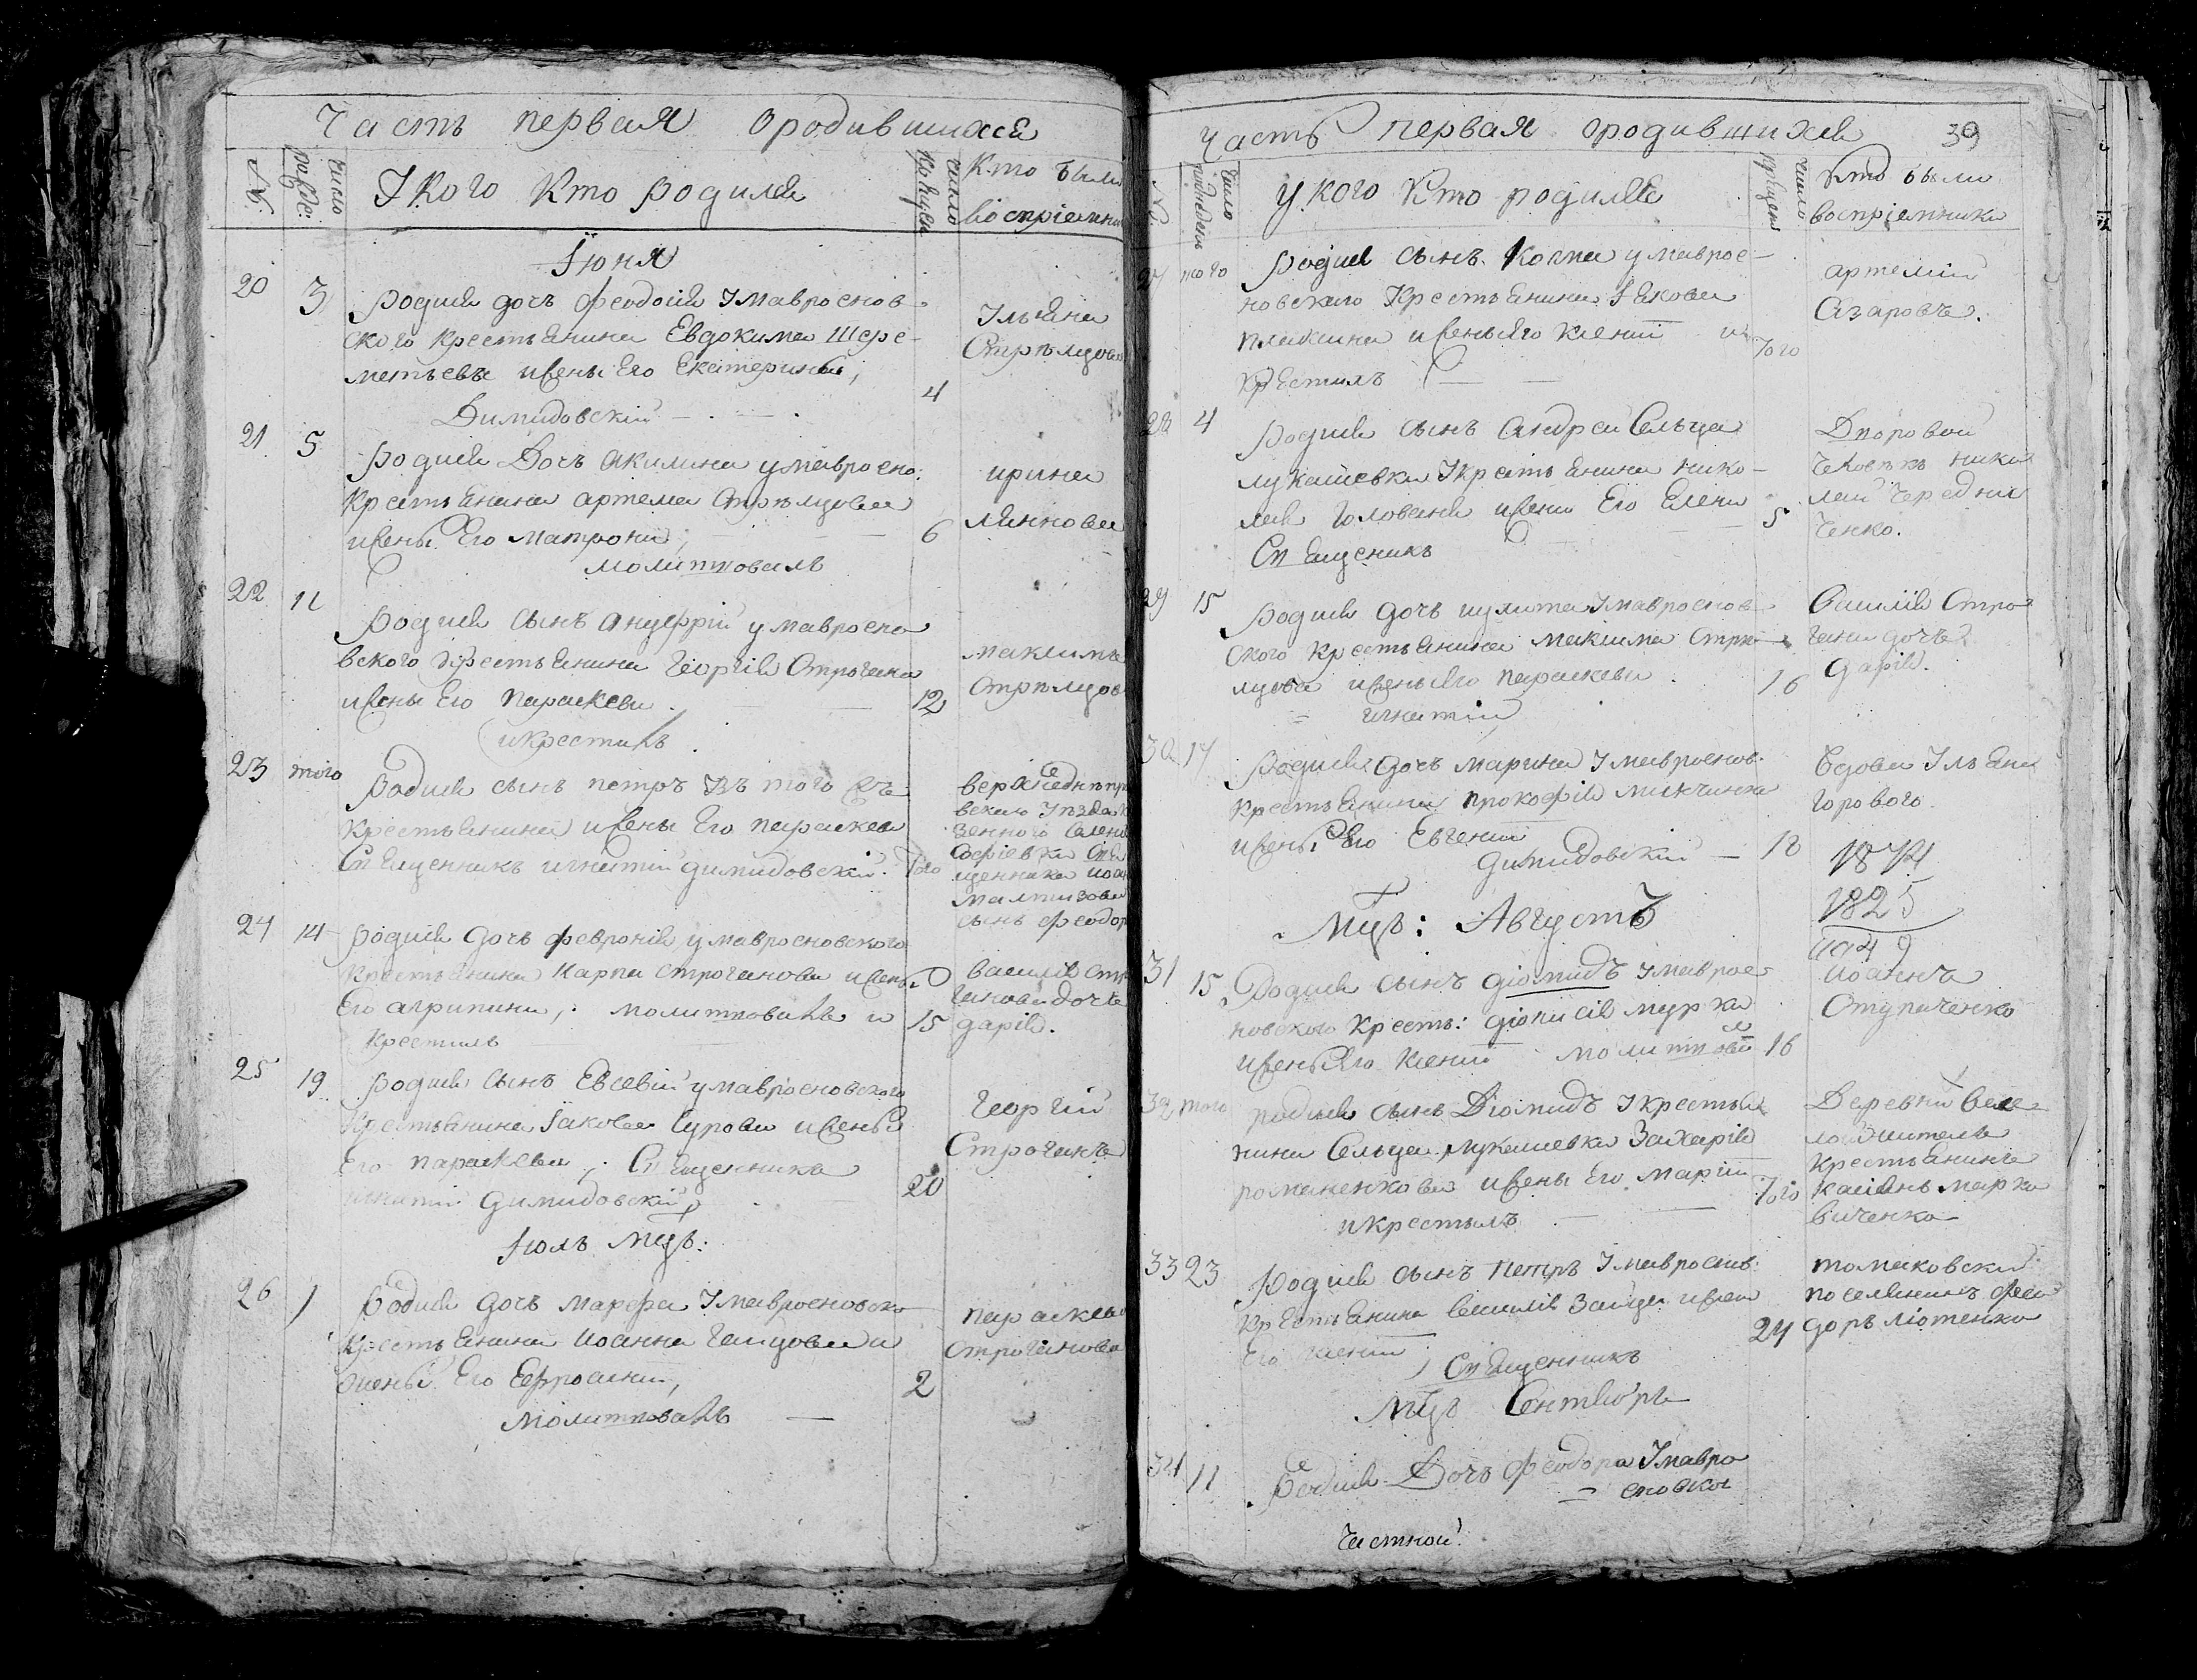 Часть первая ородившихсѧ
№
число рожде:
Укого Кто родилсѧ
число крещен
Кто были
воспрiемни
Iюня
20 3 Родися дочь Феодосiя Умавроенов-
ского крестьянина Евдокима Шере-
метьева ижены Его Екатерины, 4
Димидовскiй
Ульяна
Стрѣлцова
21 5 Родися Дочь Акилина умавроено:
Крестьянина артема Стрѣлцова
ижены Его Матроны, 6
молитвовалъ
ирина
Линнова
22 11 Родися сынъ Ануфрiй умаврoено
вского Крестьянина Георгiя Строгана
ижены Его Параскевы. 12
икрестилъ.
максимъ
Стрѣлцов
23 того Родися сынъ петръ
Крестьянина ижены Его параскевы
Священникъ игнатiй димидовскiй. того
верхнеднѣпр
вскаго Уѣзда
зенного Селенiя
Софiевки Свя
щенника Иоан
сынъ Феодор
24 14 Родися Дочь Февронiя умавроеновского
Крестьянина Карпа Строганова ижены
Его агрипины, молитвовалъ и 15
крестилъ
василiя Стро
ганова дочь
дарiя.
25 19 Родися Сынъ Евсевiй умавроеновского
Крестьянина Iакова Сурова ижены
Его параскевы, Священникъ
игнатiй димидовскiй, 20
Георгiй
Строганъ
Iюль мцъ:
26 1 Родися дочь марфа Умавроеновско
Крестьянина Иоанна Гайдова и
жены Его Ефросинiи, 2
молитвовалъ
параскева
Строганова
Часть первая ородившихся 39
№
число рожденiя
у кого Кто родилсѧ
число крещен
Кто были
воспрiемники
27 того Родися сынъ Косма умаврое-
новскаго Крестьянина Iакова
плаксина ижены Его Ксенiи и того
крестилъ
артемiй
Азаровъ.
28 4 Родися сынъ Андрей Сельца
лукашевки Укрестьянина нико-
лая Голованя ижены Его Елены 5
Священикъ
Дворовой
человѣкъ нико
лай Чередни
ченко.
29 15 Родися дочь иулита Умавроенов-
ского крестьянина максима Стрѣ-
лцова ижены Его параскевы. 16
игнатiй
василiя Стро
гана дочь
дарiя.
30 17 Родися дочь марина Умавроенов.
Крестьянина прокофiя минчинка
ижены Его Евгенiи
димидовскiй 18
вдова Ульяна
горового.
1874
1825
49
Мцъ: Августъ
31 15 Родися сынъ дiомидъ Умаврое-
новского крест: дiонисiя мурка
ижены Его Ксенiи молитвов 16
иоаннъ
Ступаченко
32 того родися сынъ Дiомидъ Укрестья
нина Сельца лукашевки Захарiя
романенкова ижены Его Марiи того
икрестилъ
Деревни весе-
лой житель
Крестьянинъ
касiанъ марко
виченко
33 23 Родися сынъ Петръ Умавроенов.
Крестьянина василiя Зайца ижены
Его Ксенiи, 24
Священникъ
томаковски
поселянинъ Фео
доръ лютенко
Мцъ Сентябрь
34 11 Родися Дочь Феодора Умавро
еновског
Частной.